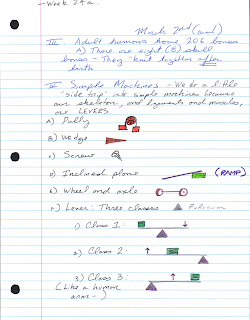 - Week 24a.
March 2nd (and)
III Adult humans have 206 bones
A) There are eight (8) skull
bones - They "knit together after
birth
IV Simple Machines - We do a little
"side trip" into simple machines because
our skeleton, and ligaments and muscles,
are LEVERS.
A) Pully
B) Wedge
C) Screw
D) Inclined plane (RAMP)
E) Wheel and axle
F) Lever: Three classes Fulcrum
1) Class 1:
2) Class 2:
3) Class 3:
(Like a human
arm-)